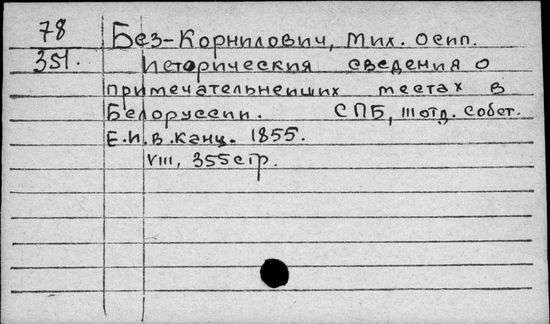 78 Без-Корнилович, Мих. Осип.
351. Исторические сведения о
примечательнейших местах в
Белоруссии. СПБ, III отд. собст.
Е.И.В. Канц. 1855.
VIII, 355 стр.